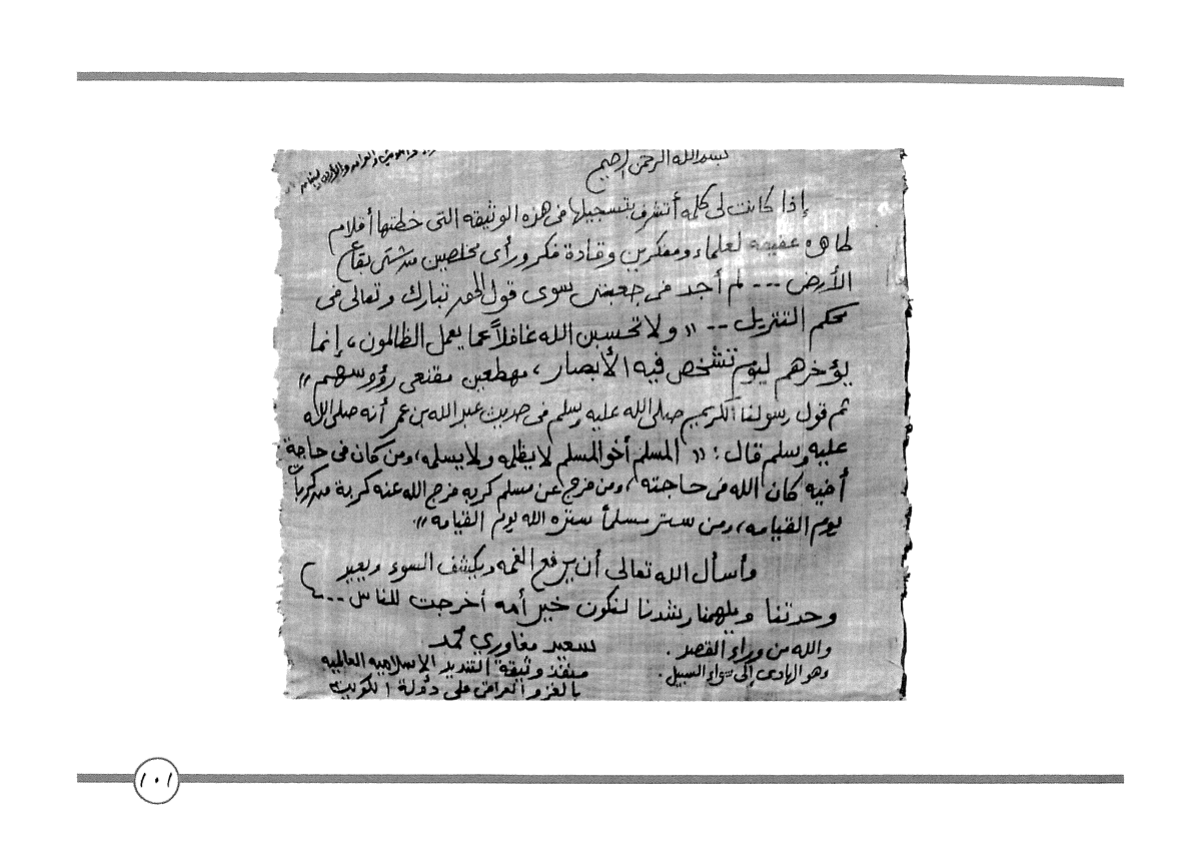 بسم الله الرحمن الرحيم
إذا كانت لى كلمه أتشرف بتسجيلها فى هذه الوثيقه التى خطتها أقلام
طاهره عفيفه لعلماء ومفكرين وقادة فكر ورأى مخلصين من شتى بقاع
الأرض --- لم أجد فى جعبتى سوى قول الحق تبارك وتعالى فى
محكم التنزيل -- "ولا تحسبن الله غافلاً عما يعمل الظالمون، إنما
يؤخرهم ليوم تشخص فيه الأبصار، مهطعين مقنعى رؤوسهم"
ثم قول رسولنا الكريم صلى الله عليه وسلم فى حديث عبد الله بن عمر أنه صلى الله
عليه وسلم قال: "المسلم أخو المسلم لا يظلمه ولا يسلمه، ومن كان فى حاجة
أخيه كان الله فى حاجته، ومن فرج عن مسلم كربه فرج الله عنه كربة من كربات
يوم القيامه، ومن ستر مسلماً ستره الله يوم القيامه".
وأسأل الله تعالى أن يرفع الغمه ويكشف السوء ويعيد
وحدتنا ويلهمنا رشدنا لنكون خير أمه أخرجت للناس ---
والله من وراء القصد.
وهو الهادى إلى سواء السبيل.
سعيد مغاوري محمد
منفذ وثيقة التنديد الإسلاميه العالميه
بالغزو العراقى على دولة الكويت
١٠١